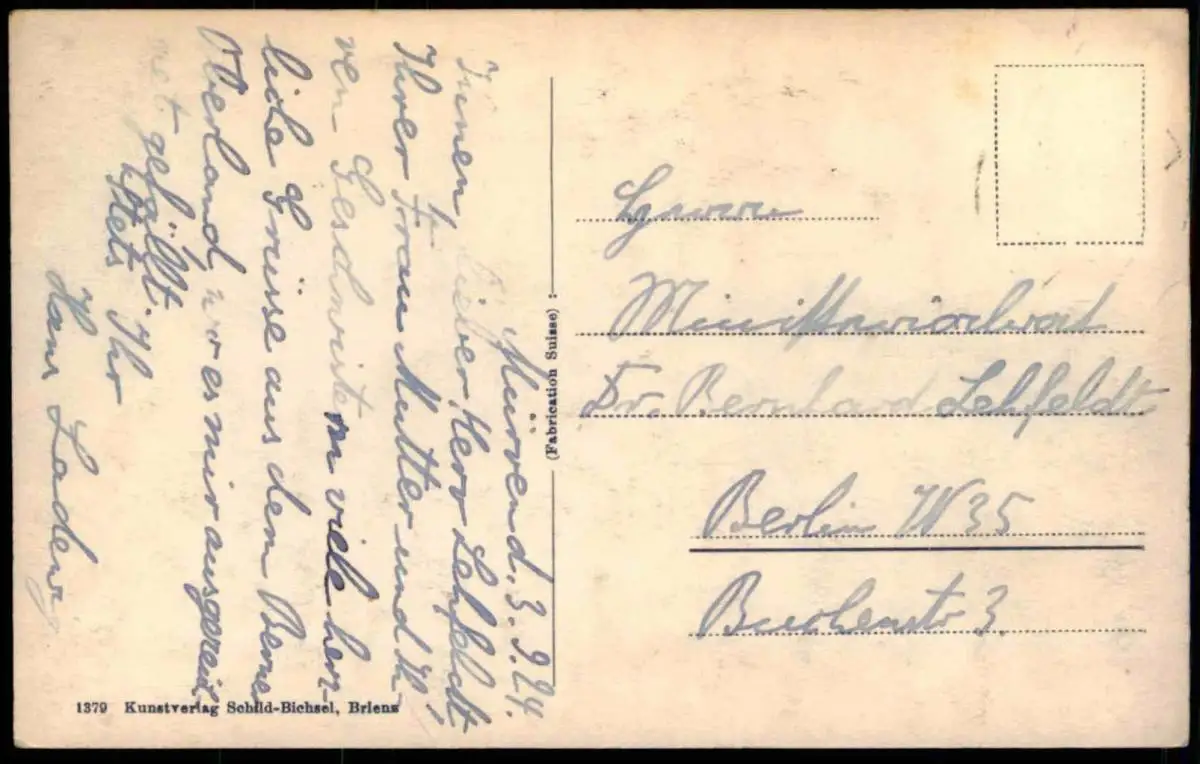 Mürren d. 3. 9. 24.
Ihnen, lieber Herr Lehfeldt,
Ihrer Frau Mutter und Ih-
ren Geschwistern viele herz-
liche Grüsse aus dem Berner
Oberland, wo es mir ausgezeich-
net gefällt.
Stets Ihr
Hans Ladewig
(Fabrication Suisse)
Herrn
Ministerialrat
Dr. Bernhard Lehfeldt
Berlin W 35
Buchenstr 3.
1379 Kunstverlag Schild-Bichsel, Brienz